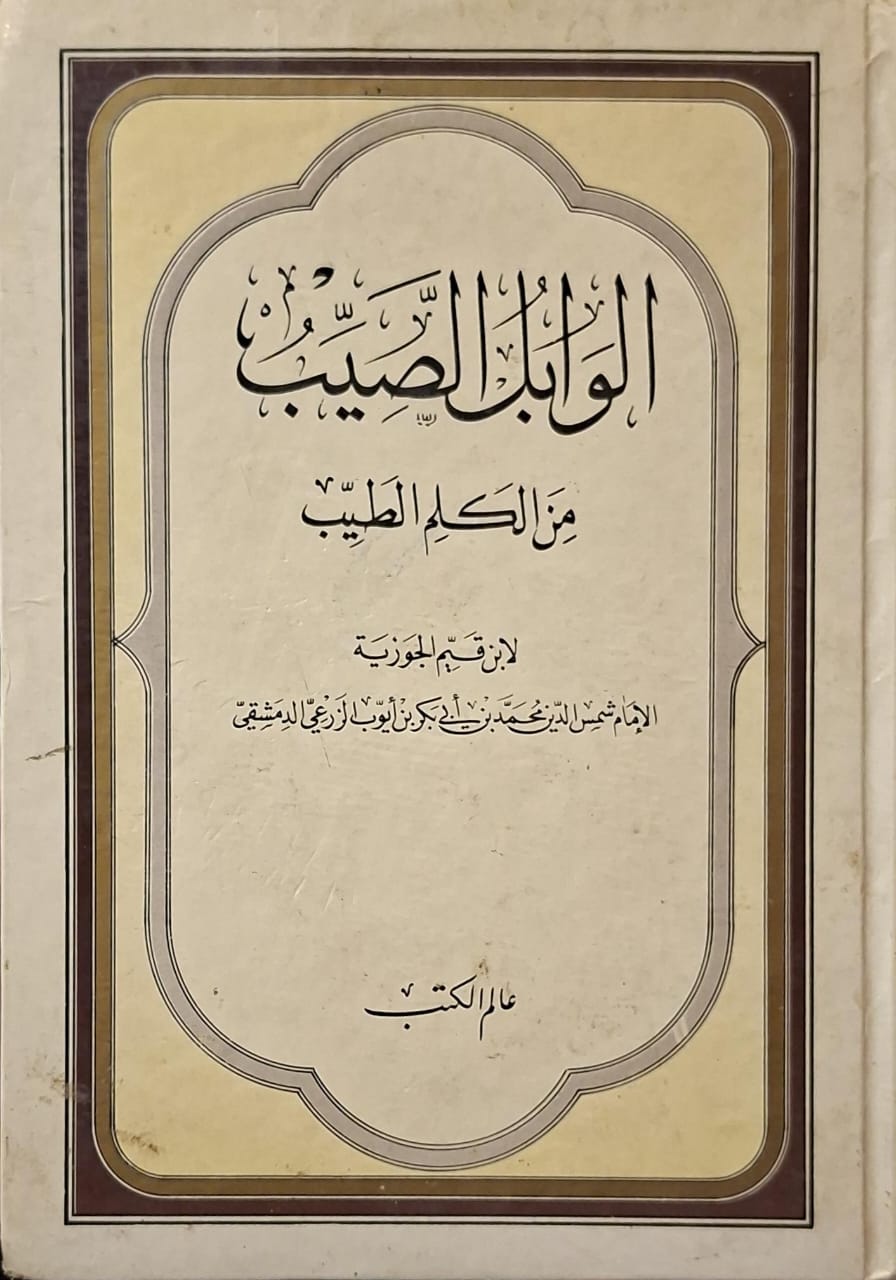 الوَابِلُ الصَّيِّبُ
مِنَ الكَلِمِ الطَيِّبِ
لابن قَيِّم الجَوزيَة
الإمَام شمس الدّين محُمَد بن أبي بكر بن أيوّب الزرعيّ الدِمَشقِيّ
عالم الكتب